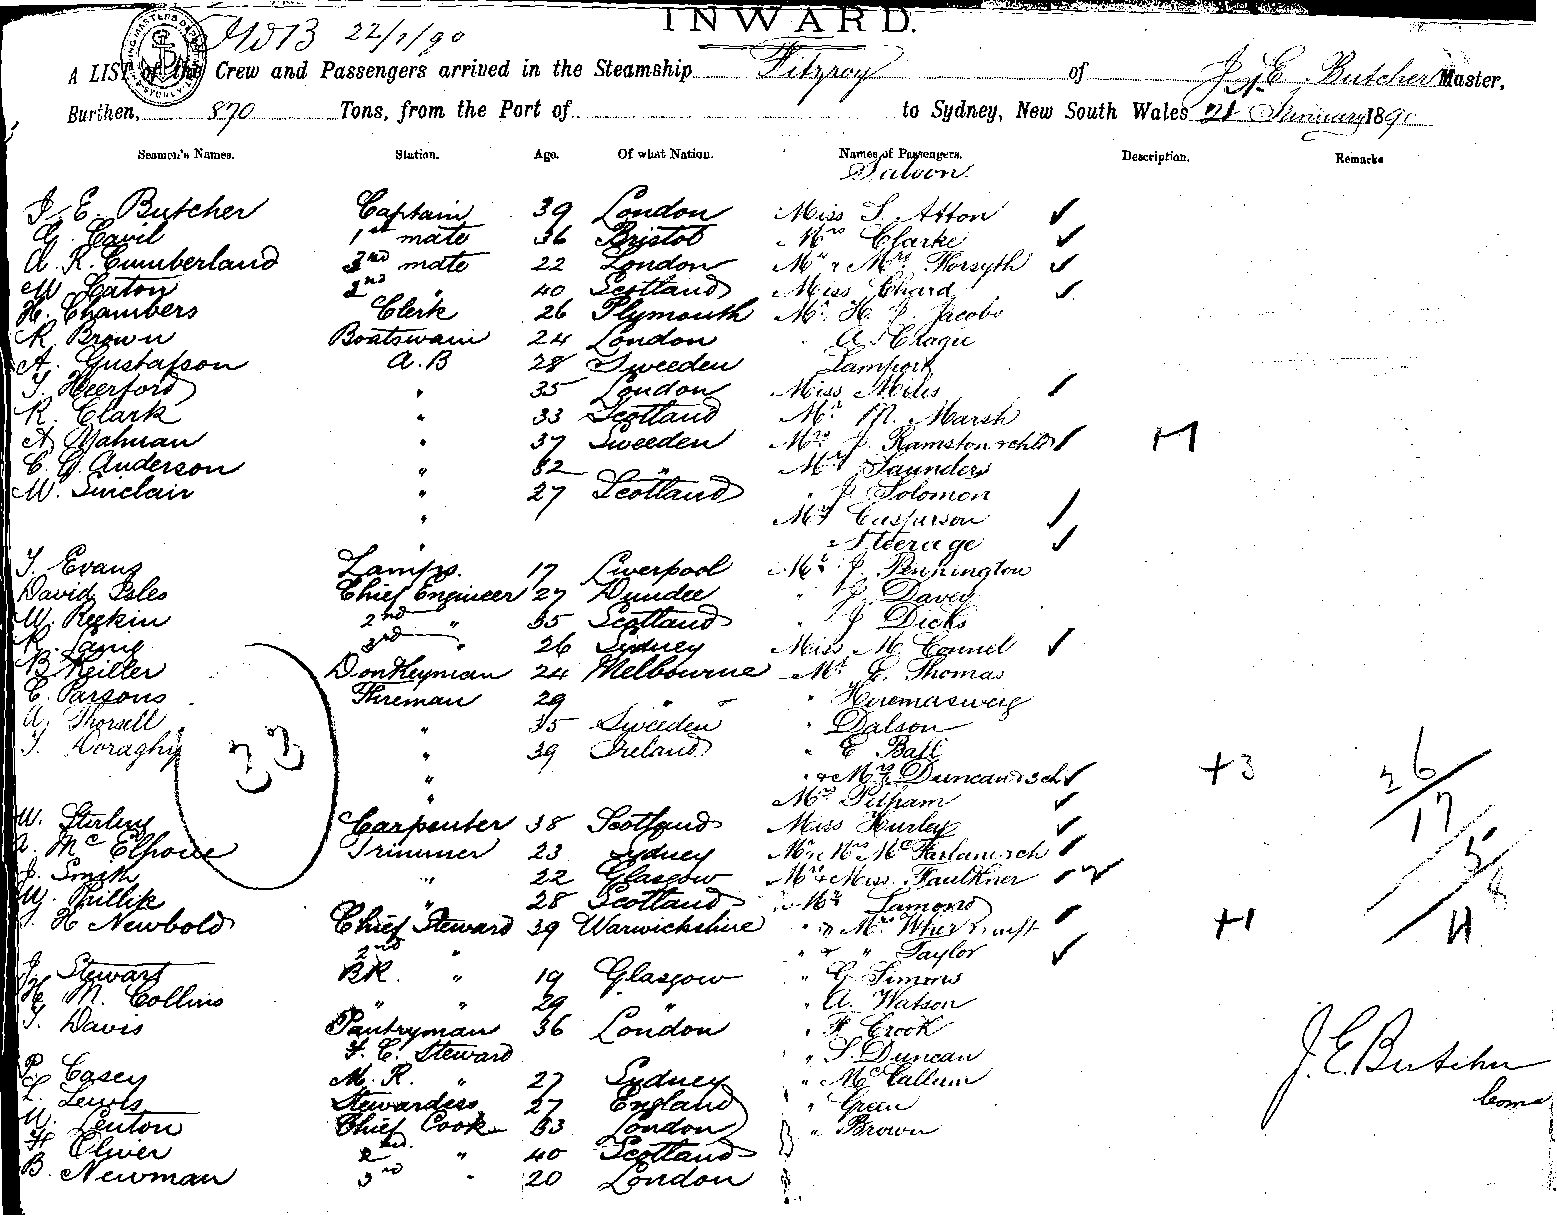 INWARD.
22/1/90
A LIST of the Crew and Passengers arrived in the Steamship Fitzroy of J. E. Butcher Master,
Burthen, 870 Tons, from the Port of to Sydney, New South Wales 21 January 1890
Seamen's Names. Station. Age. Of what Nation. Names of Passengers. Description. Remarks
Saloon
J. E. Butcher Captain 39 London Miss S. Atton
G. Cavil 1st mate 36 Bristol Mrs Clarke
A. R. Cumberland 2nd mate 22 London Mr & Mrs Forsyth
W. Eaton 2nd " 40 Scotland Miss Chard
H. Chambers Clerk 26 Plymouth Mr H. J. Jacobs
R. Brown Boatswain 24 London " A. Cragie
A. Gustafson A.B 28 Sweeden Lamport
T. Heerford " 35 London Miss Miles
R. Clark " 33 Scotland Mr M. Marsh
A. " 37 Sweeden Mrs J. Ramston & chld
C. G. Anderson " 32 " Mr Saunders
W. Sinclair " 27 Scotland " J. Solomon
" Mrs
" Steerage
T. Evans Lamps. 17 Liverpool Mr J. Pennington
David Isles Chief Engineer 27 Dundee " J. Davey
W. 2nd " 35 Scotland " J. Dicks
R. Lang 3rd " 26 Sydney Miss M. Connel
B. Donkeyman 24 Melbourne Mr J. Thomas
C. Parsons Fireman 29 " "
A. Thorsell " 35 Sweeden " Dalson
T. " 39 Ireland " E Ball
" " & Mrs Duncan & 3 ch +3
" Mrs Pelham
W. Stirling Carpenter 38 Scotland Miss Hurley
A. Mc Trimmer 23 Sydney Mr & Mrs McFarlane & ch
J. Smith " 22 Glasgow Mrs & Miss Faulkner
W. " 28 Scotland " Mr Lamond
J. H Newbold Chief Steward 39 Warwickshire " & Mrs +1
2nd " " & " Taylor
J. Stewart BR. " 19 Glasgow " G. Simms
H. M. Collins " " 29 " " A. Watson
T. Davis Pantryman 36 London " F. Crook
F. C. Steward " S. Duncan
P. Casey M. R. " 27 Sydney " McCallum
L. Lewis Stewardess 27 England " Green
W. Lenton Chief Cook 33 London " Brown
H. Oliver 2nd " 40 Scotland
B. Newman 3rd " 20 London
33
26
17
5
8
11
J. E. Butcher